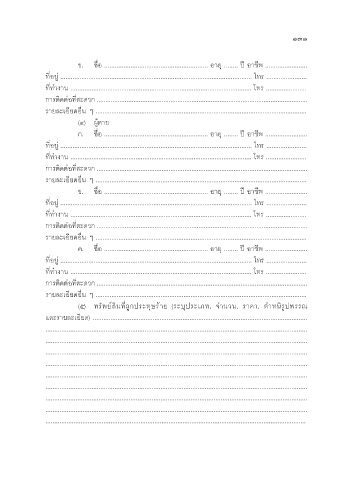 ๑๓๑
ข. ชื่อ ........................................................ อายุ ........ ปี อาชีพ .......................
ที่อยู่ ........................................................................................................ โทร ......................
ที่ทำงาน .................................................................................................. โทร ......................
การติดต่อที่สะดวก ..................................................................................................................
รายละเอียดอื่น ๆ ...................................................................................................................
(๔) ผู้ตาย
ก. ชื่อ ........................................................ อายุ ........ ปี อาชีพ .......................
ที่อยู่ ........................................................................................................ โทร ......................
ที่ทำงาน .................................................................................................. โทร ......................
การติดต่อที่สะดวก ..................................................................................................................
รายละเอียดอื่น ๆ ...................................................................................................................
ข. ชื่อ ........................................................ อายุ ........ ปี อาชีพ .......................
ที่อยู่ ........................................................................................................ โทร ......................
ที่ทำงาน .................................................................................................. โทร ......................
การติดต่อที่สะดวก ..................................................................................................................
รายละเอียดอื่น ๆ ...................................................................................................................
ค. ชื่อ ........................................................ อายุ ........ ปี อาชีพ .......................
ที่อยู่ ........................................................................................................ โทร ......................
ที่ทำงาน .................................................................................................. โทร ......................
การติดต่อที่สะดวก ..................................................................................................................
รายละเอียดอื่น ๆ ...................................................................................................................
(๕) ทรัพย์สินที่ถูกประทุษร้าย (ระบุประเภท, จำนวน, ราคา, ตำหนิรูปพรรณ
และรายละเอียด) .....................................................................................................................